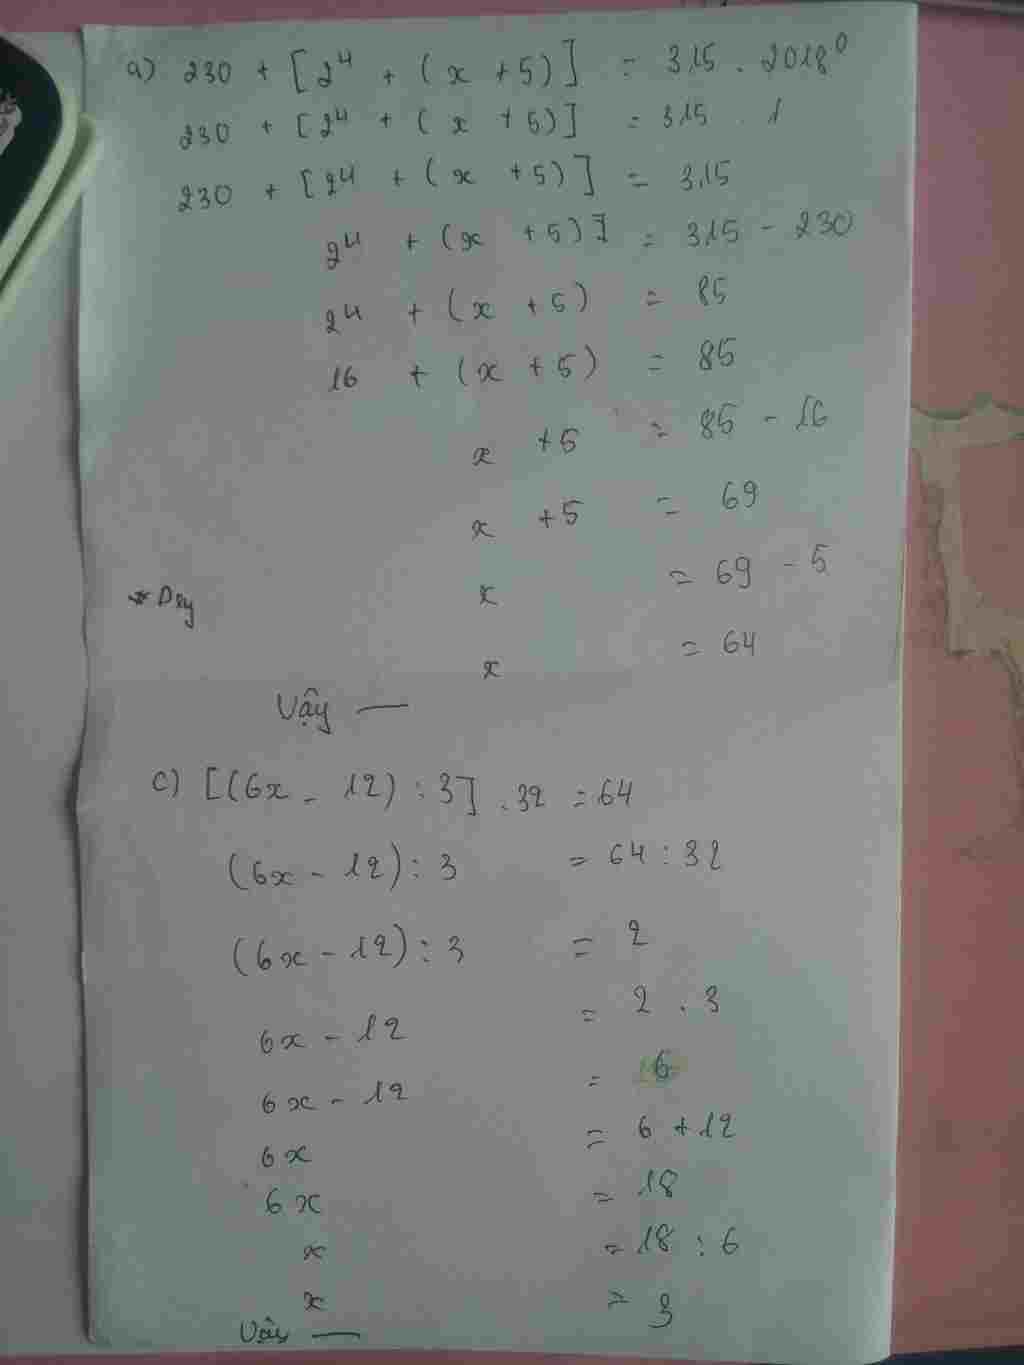 a) 230 + [2⁴ + (x + 5)] = 315 . 2018⁰
230 + [2⁴ + (x + 5)] = 315 . 1
230 + [2⁴ + (x + 5)] = 315
2⁴ + (x + 5)] = 315 - 230
2⁴ + (x + 5) = 85
16 + (x + 5) = 85
x + 5 = 85 - 16
x + 5 = 69
x = 69 - 5
x = 64
Vậy —
c) [(6x - 12) : 3] . 32 = 64
(6x - 12) : 3 = 64 : 32
(6x - 12) : 3 = 2
6x - 12 = 2 . 3
6x - 12 = 6
6x = 6 + 12
6x = 18
x = 18 : 6
x = 3
Vậy —